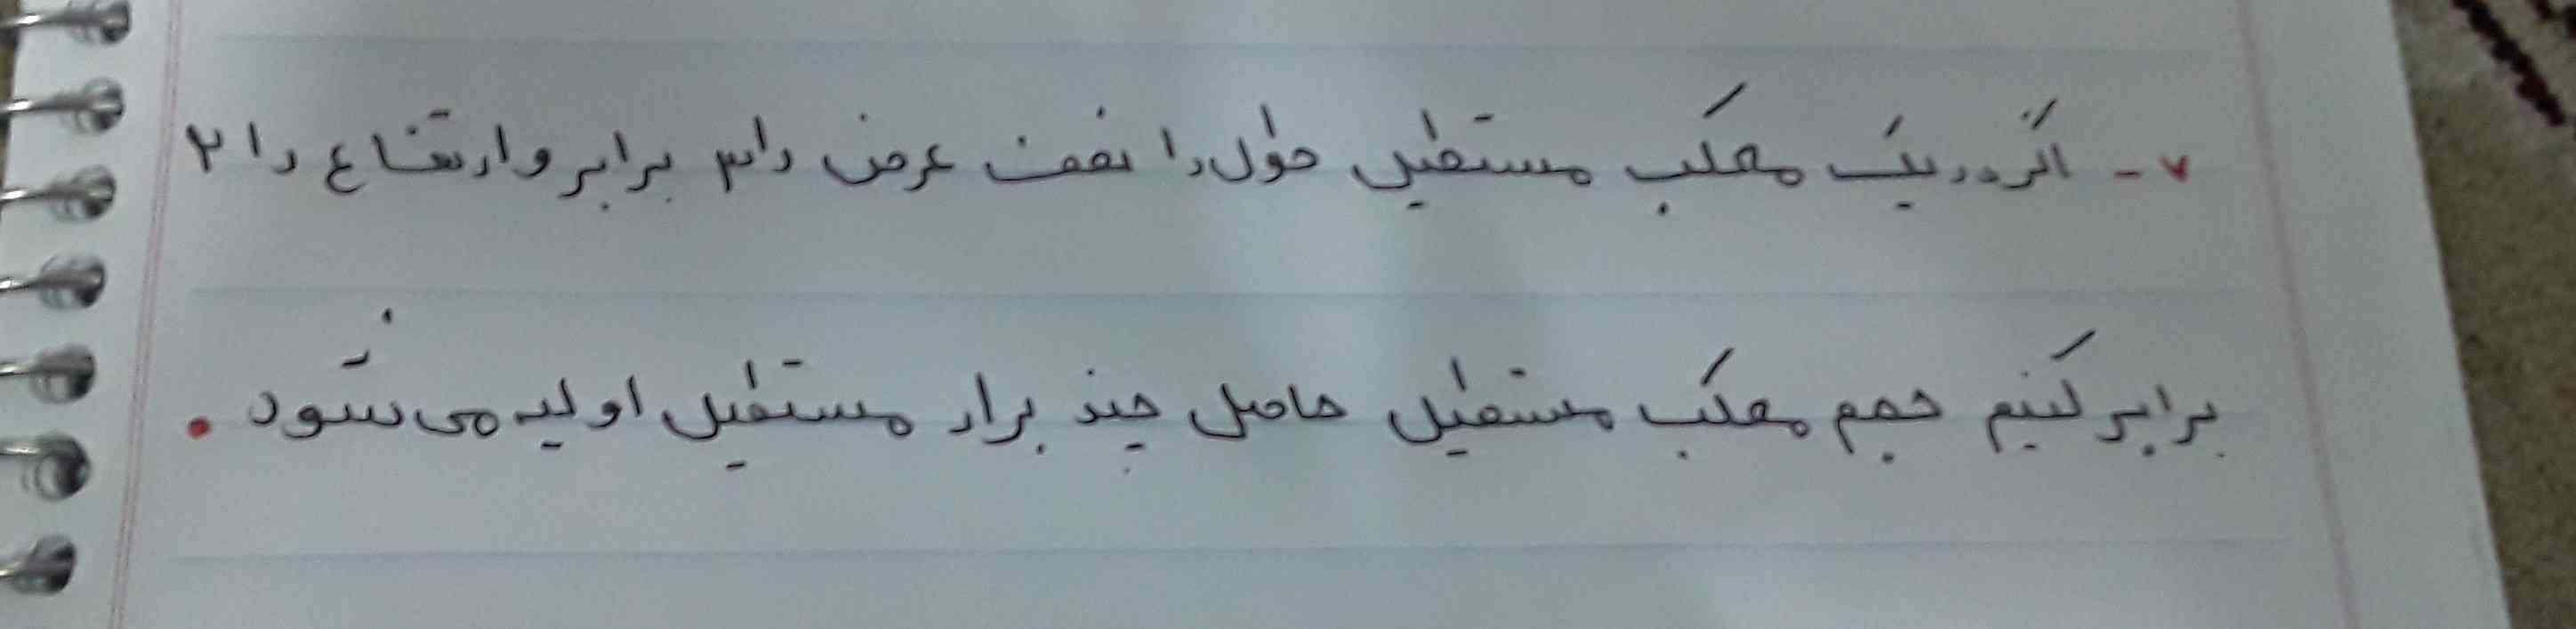 ۷- اگر در یک مکعب مستطیل طول را نصف عرض را ۳ برابر و ارتفاع را ۲
برابر کنیم حجم مکعب مستطیل حاصل چند برار مستطیل اولیه می شود.